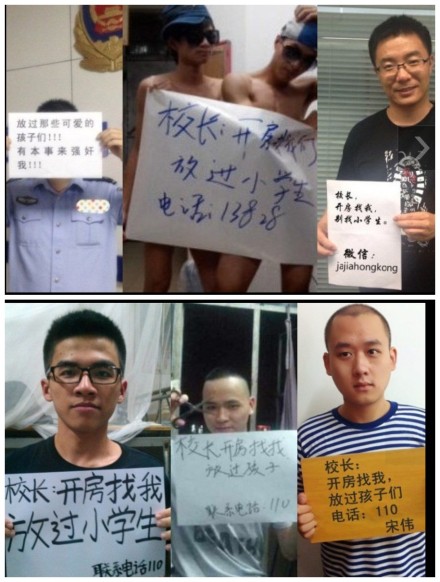 放过那些可爱的
孩子们!!!
有本事来强奸
我!!!
校长:开房找我们
放过小学生
电话:13828
校长,
开房找我,
别找小学生。
微信:
jajiahongkong
校长:开房找我
放过小学生
联系电话110
校长开房找我
放过孩子
联系电话:110
校长:
开房找我,
放过孩子们
电话:110
宋伟